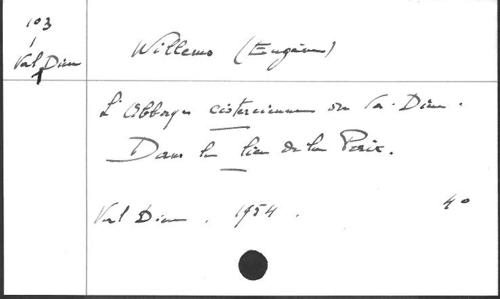 103
Val Dieu
Willems (Eugène)
L'Abbaye cistercienne du Val-Dieu.
Dans le lieu de la Paix.
Val Dieu. 1954. 40